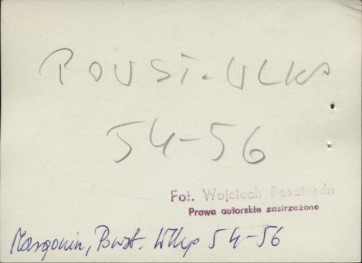 POWST. WLKP
54-56
Fot. Wojciech
Prawa autorskie zastrzeżone
Margonin, Powst. Wlkp 54-56